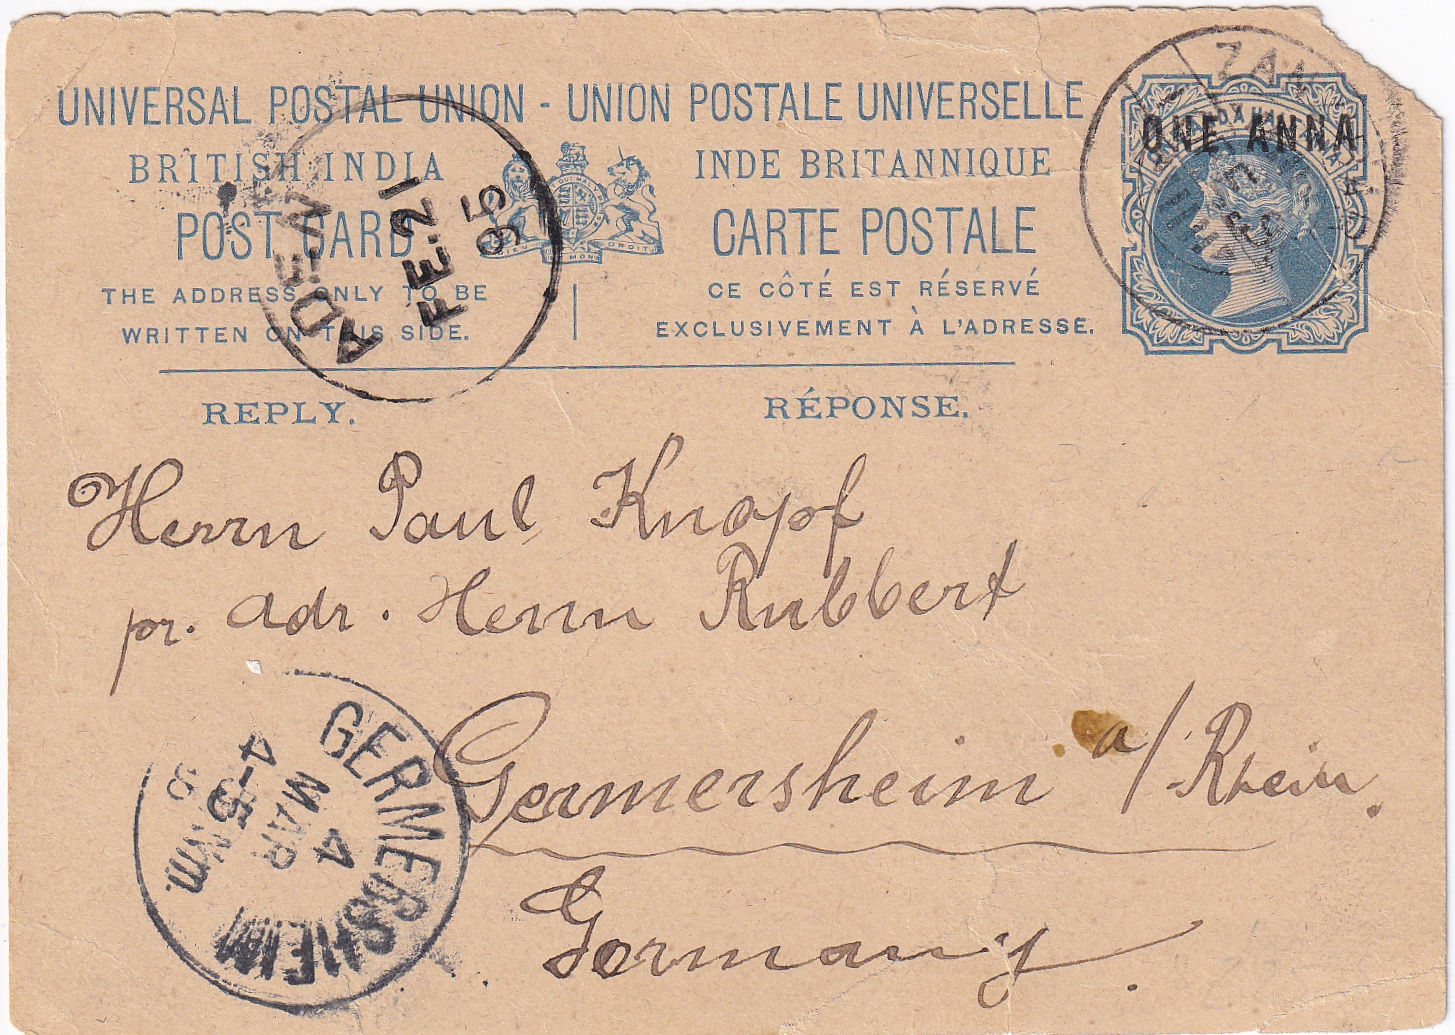 UNIVERSAL POSTAL UNION - UNION POSTALE UNIVERSELLE
BRITISH INDIA
POST CARD
THE ADDRESS ONLY TO BE
WRITTEN ON THIS SIDE.
INDE BRITANNIQUE
CARTE POSTALE
CE CÔTÉ EST RÉSERVÉ
EXCLUSIVEMENT À L'ADRESSE.
ONE ANNA
ZAN
ADEN
FE.21
95
REPLY.
RÉPONSE.
Herrn Paul Knopf
pr. adr. Herrn Rubbert
Germersheim a/Rhein.
Germany.
GERMERSHEIM
4
MAR
4-5 Nm.